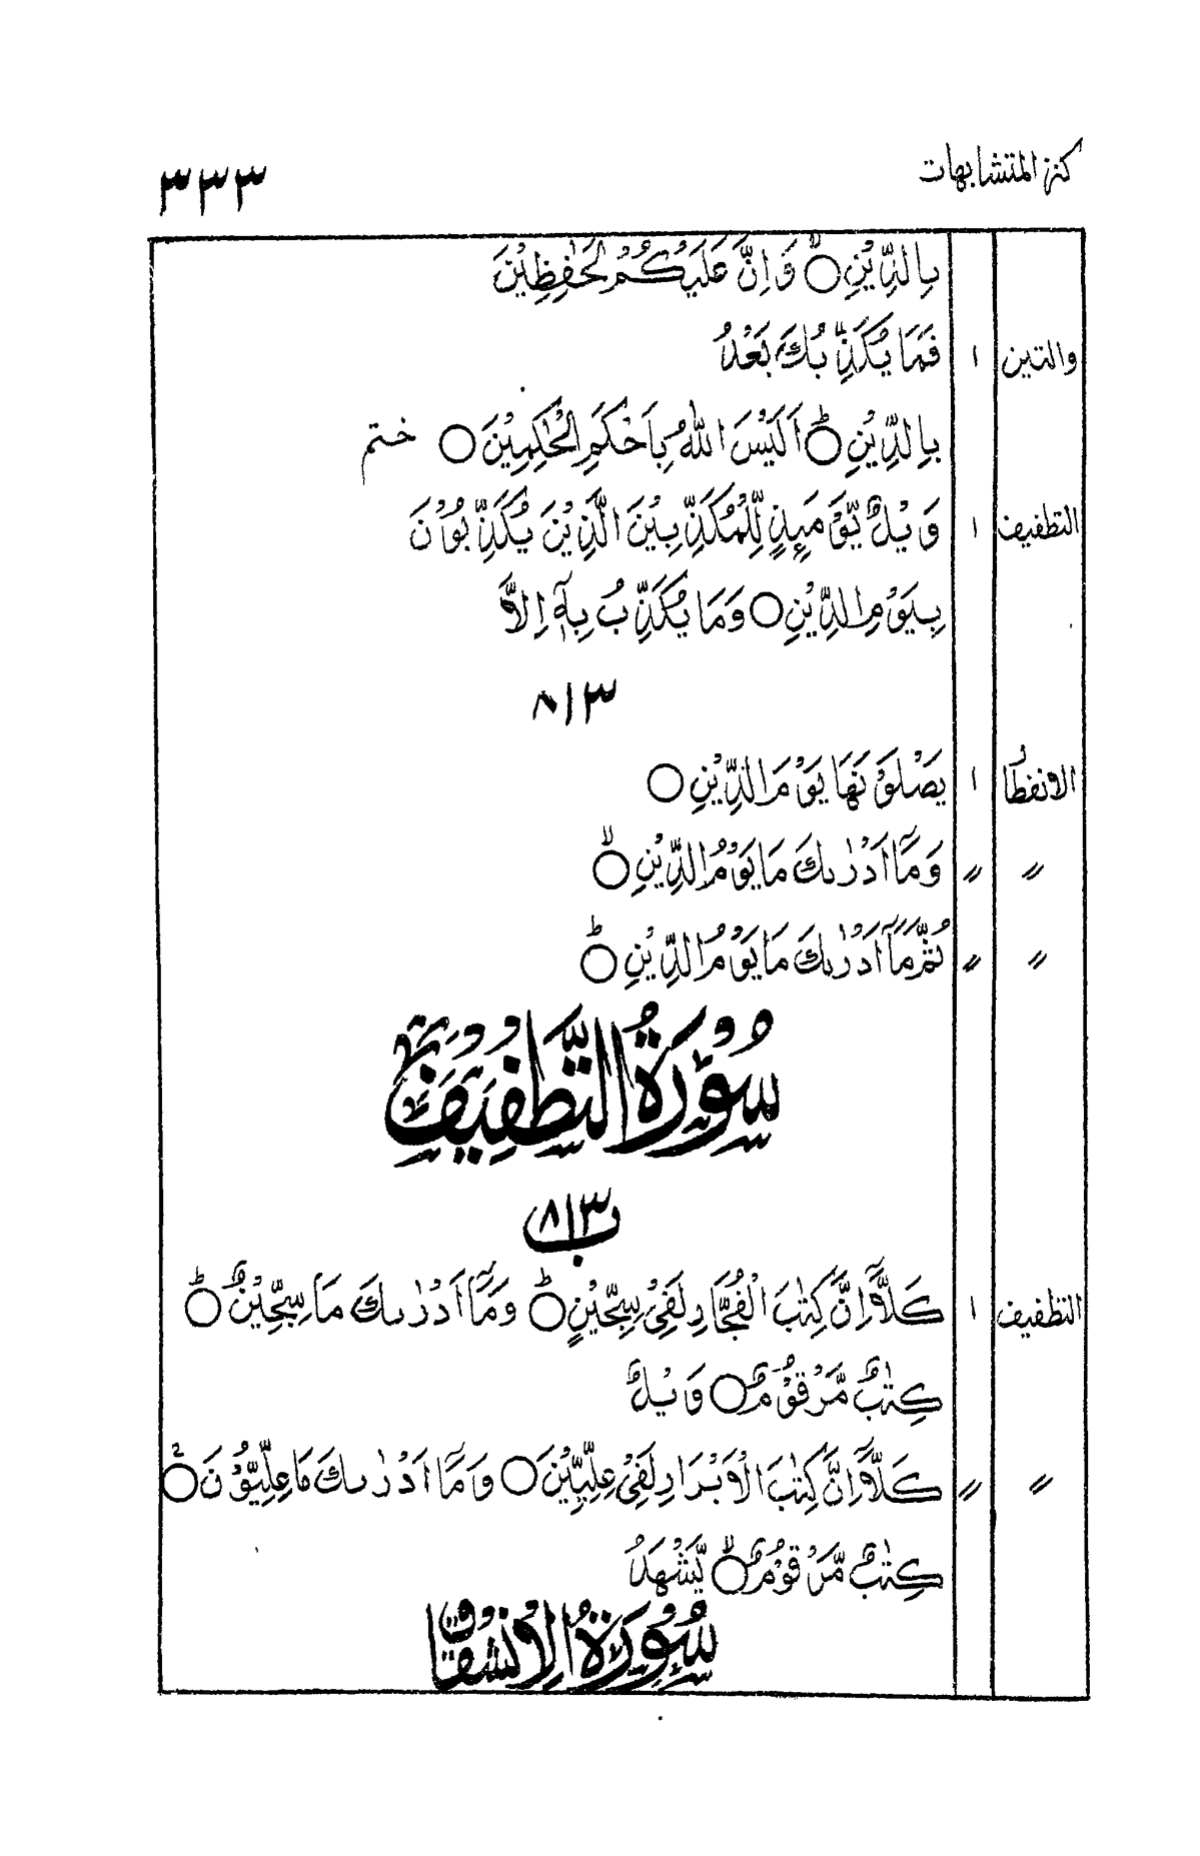 كنز المتشابهات ٣٣٣
بِالدِّيْنِ ۝ۙ وَاِنَّ عَلَيْكُمْ لَحٰفِظِيْنَ
والتين ١ فَمَا يُكَذِّبُكَ بَعْدُ
بِالدِّيْنِ ۝ؕ اَلَيْسَ اللّٰهُ بِاَحْكَمِ الْحٰكِمِيْنَ ۝ ختم
التطفيف ١ وَيْلٌ يَّوْمَئِذٍ لِّلْمُكَذِّبِيْنَ الَّذِيْنَ يُكَذِّبُوْنَ
بِيَوْمِ الدِّيْنِ ۝ وَمَا يُكَذِّبُ بِهٖٓ اِلَّا
٨١٣
الانفطار ١ يَصْلَوْنَهَا يَوْمَ الدِّيْنِ ۝
〃 〃 وَمَآ اَدْرٰىكَ مَا يَوْمُ الدِّيْنِ ۝ۙ
〃 〃 ثُمَّ مَآ اَدْرٰىكَ مَا يَوْمُ الدِّيْنِ ۝ؕ
سُوْرَةُ التَّطْفِيْفِ
٨١٣
ب
التطفيف ١ كَلَّآ اِنَّ كِتٰبَ الْفُجَّارِ لَفِيْ سِجِّيْنٍ ۝ؕ وَمَآ اَدْرٰىكَ مَا سِجِّيْنٌ ۝ؕ
كِتٰبٌ مَّرْقُوْمٌ ۝ وَيْلٌ
〃 〃 كَلَّآ اِنَّ كِتٰبَ الْاَبْرَارِ لَفِيْ عِلِّيِّيْنَ ۝ وَمَآ اَدْرٰىكَ مَا عِلِّيُّوْنَ ۝ؕ
كِتٰبٌ مَّرْقُوْمٌ ۝ۙ يَّشْهَدُ
سُوْرَةُ الْاِنْشِقَاقِ